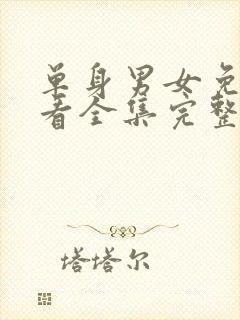 单身男女免
看全集完整
塔塔尔